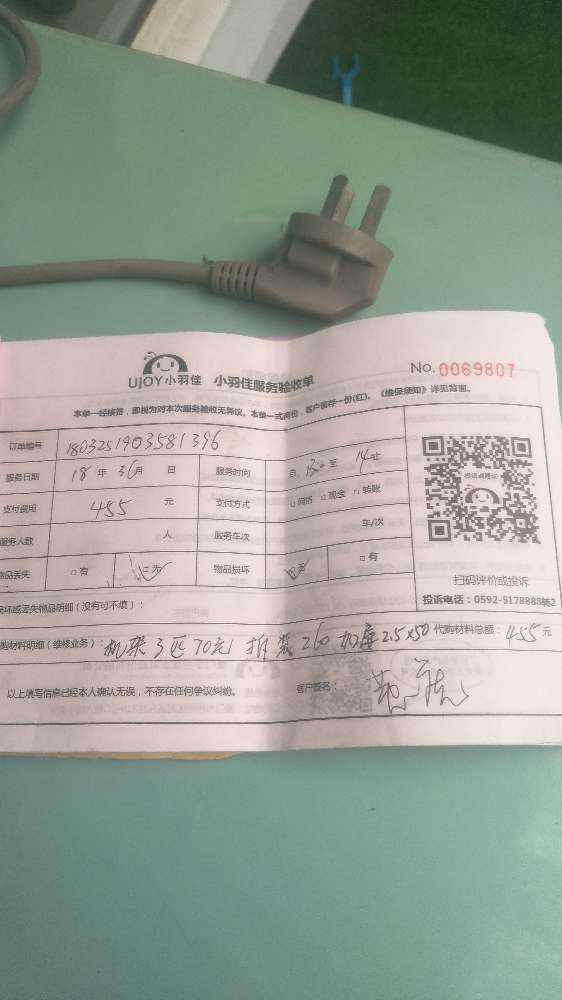 UJOY小羽佳 小羽佳服务验收单 No. 0069807
本单一经核签,即视为对本次服务验收无异议。本单一式两份,客户留存一份(红)。《维保须知》详见背面。
订单编号 1803251903581396
服务日期 18 年 月 日 服务时间 自 至 14止
支付费用 455 元 支付方式 □网络 □现金 □转账
服务人数 人 服务车次 车/次
物品丢失 □有 □无 物品损坏 □无 □有
扫码评价或投诉
投诉电话:0592-5178888转2
损坏或丢失物品明细(没有可不填):
代购材料明细(维修业务):机架3匹70元 拆装260 加 2.5x50 代购材料总额:455元
以上填写信息已经本人确认无误,不存在任何争议纠纷。 客户签名: